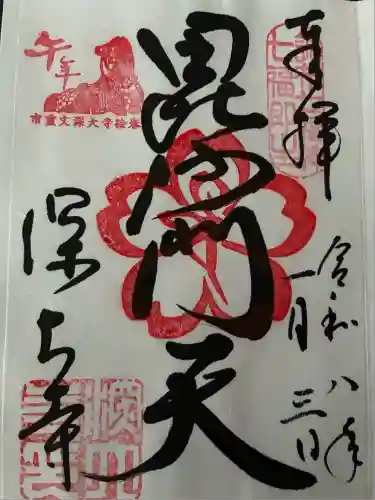 奉拝
七福即生
令和八年
一月三日
毘沙門天
午年
市重文深大寺絵巻
深大寺